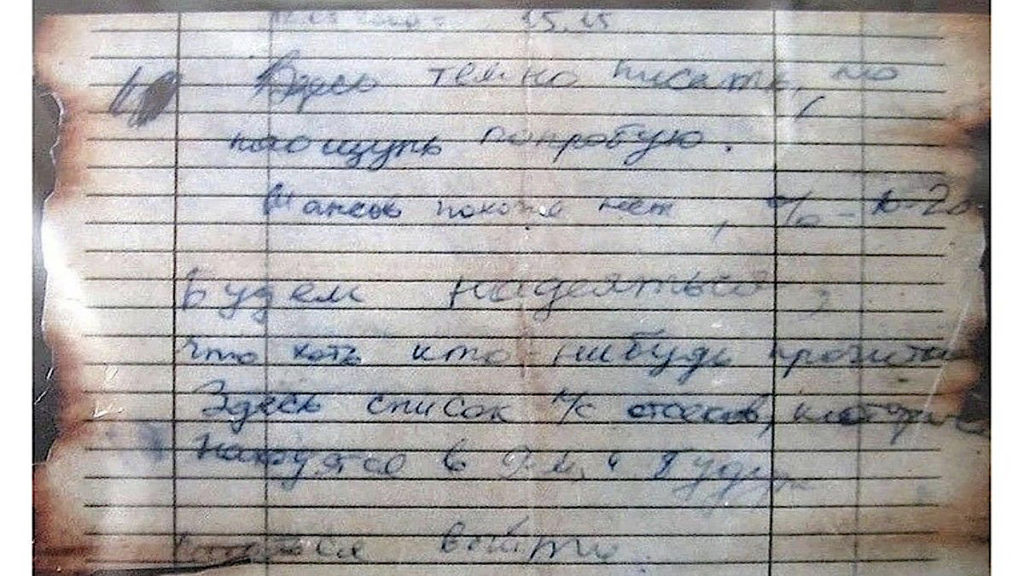 15.15
Здесь темно писать, но
наощупь попробую.
Шансов похоже нет, %-10-20
Будем надеяться,
что хоть кто-нибудь прочитает
Здесь список л/с отсеков, которые
находятся в 9-м и будут
выйти.